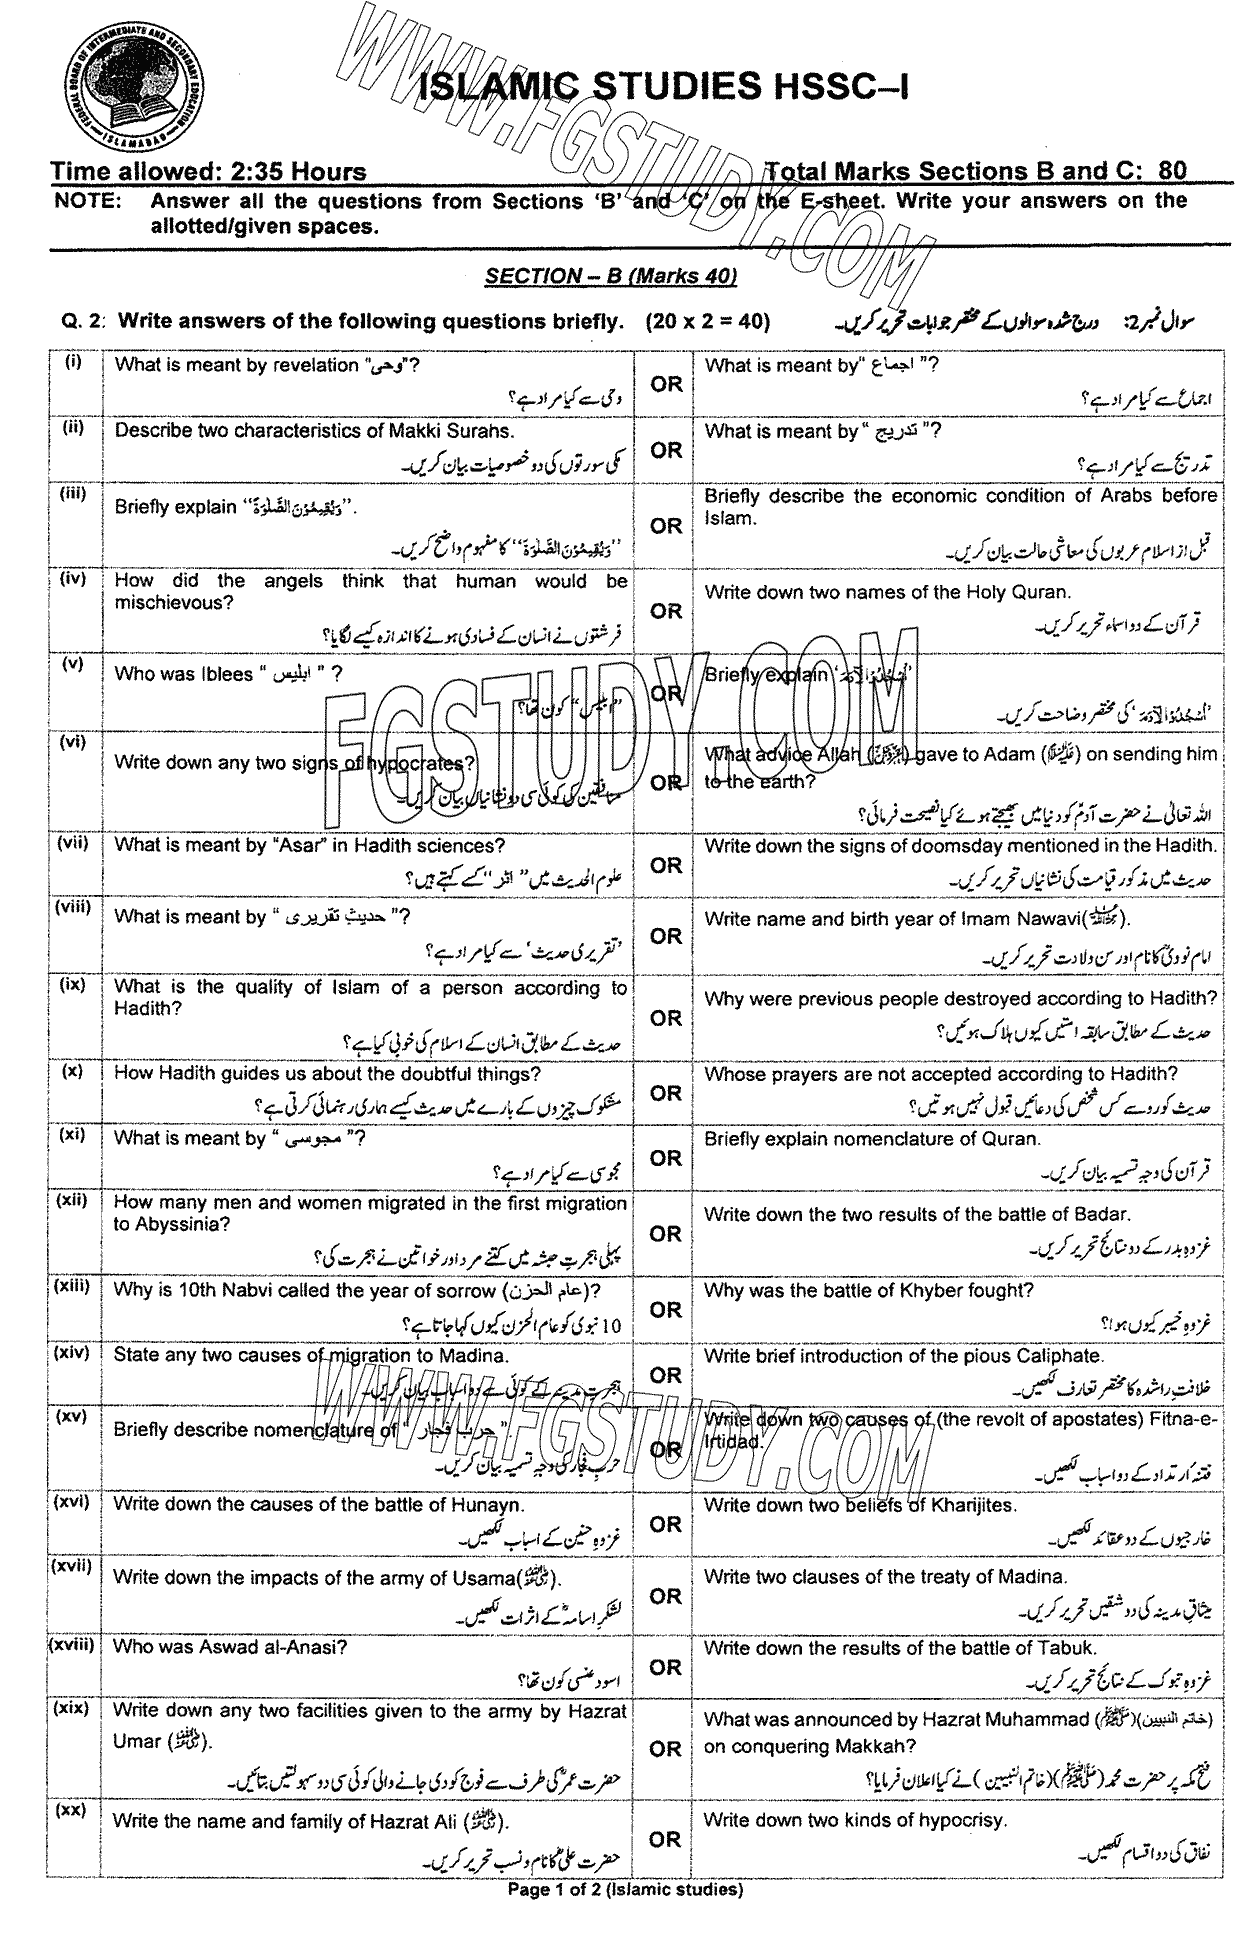 FEDERAL BOARD OF INTERMEDIATE AND SECONDARY EDUCATION
ISLAMABAD
WWW.FGSTUDY.COM
ISLAMIC STUDIES HSSC–I
Time allowed: 2:35 Hours Total Marks Sections B and C: 80
NOTE: Answer all the questions from Sections ‘B’ and ‘C’ on the E-sheet. Write your answers on the
allotted/given spaces.
SECTION – B (Marks 40)
Q. 2: Write answers of the following questions briefly. (20 x 2 = 40) سوال نمبر 2: درج شدہ سوالوں کے مختصر جوابات تحریر کریں۔
(i) What is meant by revelation “وحی”?
وحی سے کیا مراد ہے؟
OR
What is meant by“ اجماع ”?
اجماع سے کیا مراد ہے؟
(ii) Describe two characteristics of Makki Surahs.
مکی سورتوں کی دو خصوصیات بیان کریں۔
OR
What is meant by “ تدریج ”?
تدریج سے کیا مراد ہے؟
(iii) Briefly explain “وَيُقِيمُوْنَ الصَّلٰوةَ”.
“وَيُقِيمُوْنَ الصَّلٰوةَ” کا مفہوم واضح کریں۔
OR
Briefly describe the economic condition of Arabs before
Islam.
قبل از اسلام عربوں کی معاشی حالت بیان کریں۔
(iv) How did the angels think that human would be
mischievous?
فرشتوں نے انسان کے فسادی ہونے کا اندازہ کیسے لگایا؟
OR
Write down two names of the Holy Quran.
قرآن کے دو اسماء تحریر کریں۔
(v) Who was Iblees “ ابلیس ” ?
“ابلیس” کون تھا؟
OR
Briefly explain ‘اُسْجُدُوْا لِاٰدَمَ’
‘اُسْجُدُوْا لِاٰدَمَ’ کی مختصر وضاحت کریں۔
(vi) Write down any two signs of hypocrates?
منافقین کی کوئی سی دو نشانیاں بیان کریں۔
OR
What advice Allah (ﷻ) gave to Adam (علیہ السلام) on sending him
to the earth?
اللہ تعالیٰ نے حضرت آدمؑ کو دنیا میں بھیجتے ہوئے کیا نصیحت فرمائی؟
FGSTUDY.COM
(vii) What is meant by “Asar” in Hadith sciences?
علوم الحدیث میں “اثر” کسے کہتے ہیں؟
OR
Write down the signs of doomsday mentioned in the Hadith.
حدیث میں مذکور قیامت کی نشانیاں تحریر کریں۔
(viii) What is meant by “ حدیثِ تقریری ”?
‘تقریری حدیث’ سے کیا مراد ہے؟
OR
Write name and birth year of Imam Nawavi(رحمۃ اللہ علیہ).
امام نوویؒ کا نام اور سن ولادت تحریر کریں۔
(ix) What is the quality of Islam of a person according to
Hadith?
حدیث کے مطابق انسان کے اسلام کی خوبی کیا ہے؟
OR
Why were previous people destroyed according to Hadith?
حدیث کے مطابق سابقہ امتیں کیوں ہلاک ہوئیں؟
(x) How Hadith guides us about the doubtful things?
مشکوک چیزوں کے بارے میں حدیث کیسے ہماری رہنمائی کرتی ہے؟
OR
Whose prayers are not accepted according to Hadith?
حدیث کو رو سے کس شخص کی دعائیں قبول نہیں ہوتیں؟
(xi) What is meant by “ مجوسی ”?
مجوسی سے کیا مراد ہے؟
OR
Briefly explain nomenclature of Quran.
قرآن کی وجہ تسمیہ بیان کریں۔
(xii) How many men and women migrated in the first migration
to Abyssinia?
پہلی ہجرتِ حبشہ میں کتنے مرد اور خواتین نے ہجرت کی؟
OR
Write down the two results of the battle of Badar.
غزوہ بدر کے دو نتائج تحریر کریں۔
(xiii) Why is 10th Nabvi called the year of sorrow (عام الحزن)?
10 نبوی کو عام الحزن کیوں کہا جاتا ہے؟
OR
Why was the battle of Khyber fought?
غزوہ خیبر کیوں ہوا؟
(xiv) State any two causes of migration to Madina.
ہجرتِ مدینہ کے کوئی سے دو اسباب بیان کریں۔
OR
Write brief introduction of the pious Caliphate.
خلافتِ راشدہ کا مختصر تعارف لکھیں۔
(xv) Briefly describe nomenclature of “ حرب فجار ”.
حرب فجار کی وجہ تسمیہ بیان کریں۔
OR
Write down two causes of (the revolt of apostates) Fitna-e-
Irtidad.
فتنۂ ارتداد کے دو اسباب لکھیں۔
WWW.FGSTUDY.COM
(xvi) Write down the causes of the battle of Hunayn.
غزوہ حنین کے اسباب لکھیں۔
OR
Write down two beliefs of Kharijites.
خارجیوں کے دو عقائد لکھیں۔
(xvii) Write down the impacts of the army of Usama(رضی اللہ عنہ).
لشکرِ اسامہؓ کے اثرات لکھیں۔
OR
Write two clauses of the treaty of Madina.
میثاقِ مدینہ کی دو شقیں تحریر کریں۔
(xviii) Who was Aswad al-Anasi?
اسود عنسی کون تھا؟
OR
Write down the results of the battle of Tabuk.
غزوہ تبوک کے نتائج تحریر کریں۔
(xix) Write down any two facilities given to the army by Hazrat
Umar (رضی اللہ عنہ).
حضرت عمرؓ کی طرف سے فوج کو دی جانے والی کوئی سی دو سہولتیں بتائیں۔
OR
What was announced by Hazrat Muhammad (ﷺ)(خاتم النبیین)
on conquering Makkah?
فتح مکہ پر حضرت محمد(ﷺ)(خاتم النبیین) نے کیا اعلان فرمایا؟
(xx) Write the name and family of Hazrat Ali (رضی اللہ عنہ).
حضرت علیؓ کا نام و نسب تحریر کریں۔
OR
Write down two kinds of hypocrisy.
نفاق کی دو اقسام لکھیں۔
Page 1 of 2 (Islamic studies)